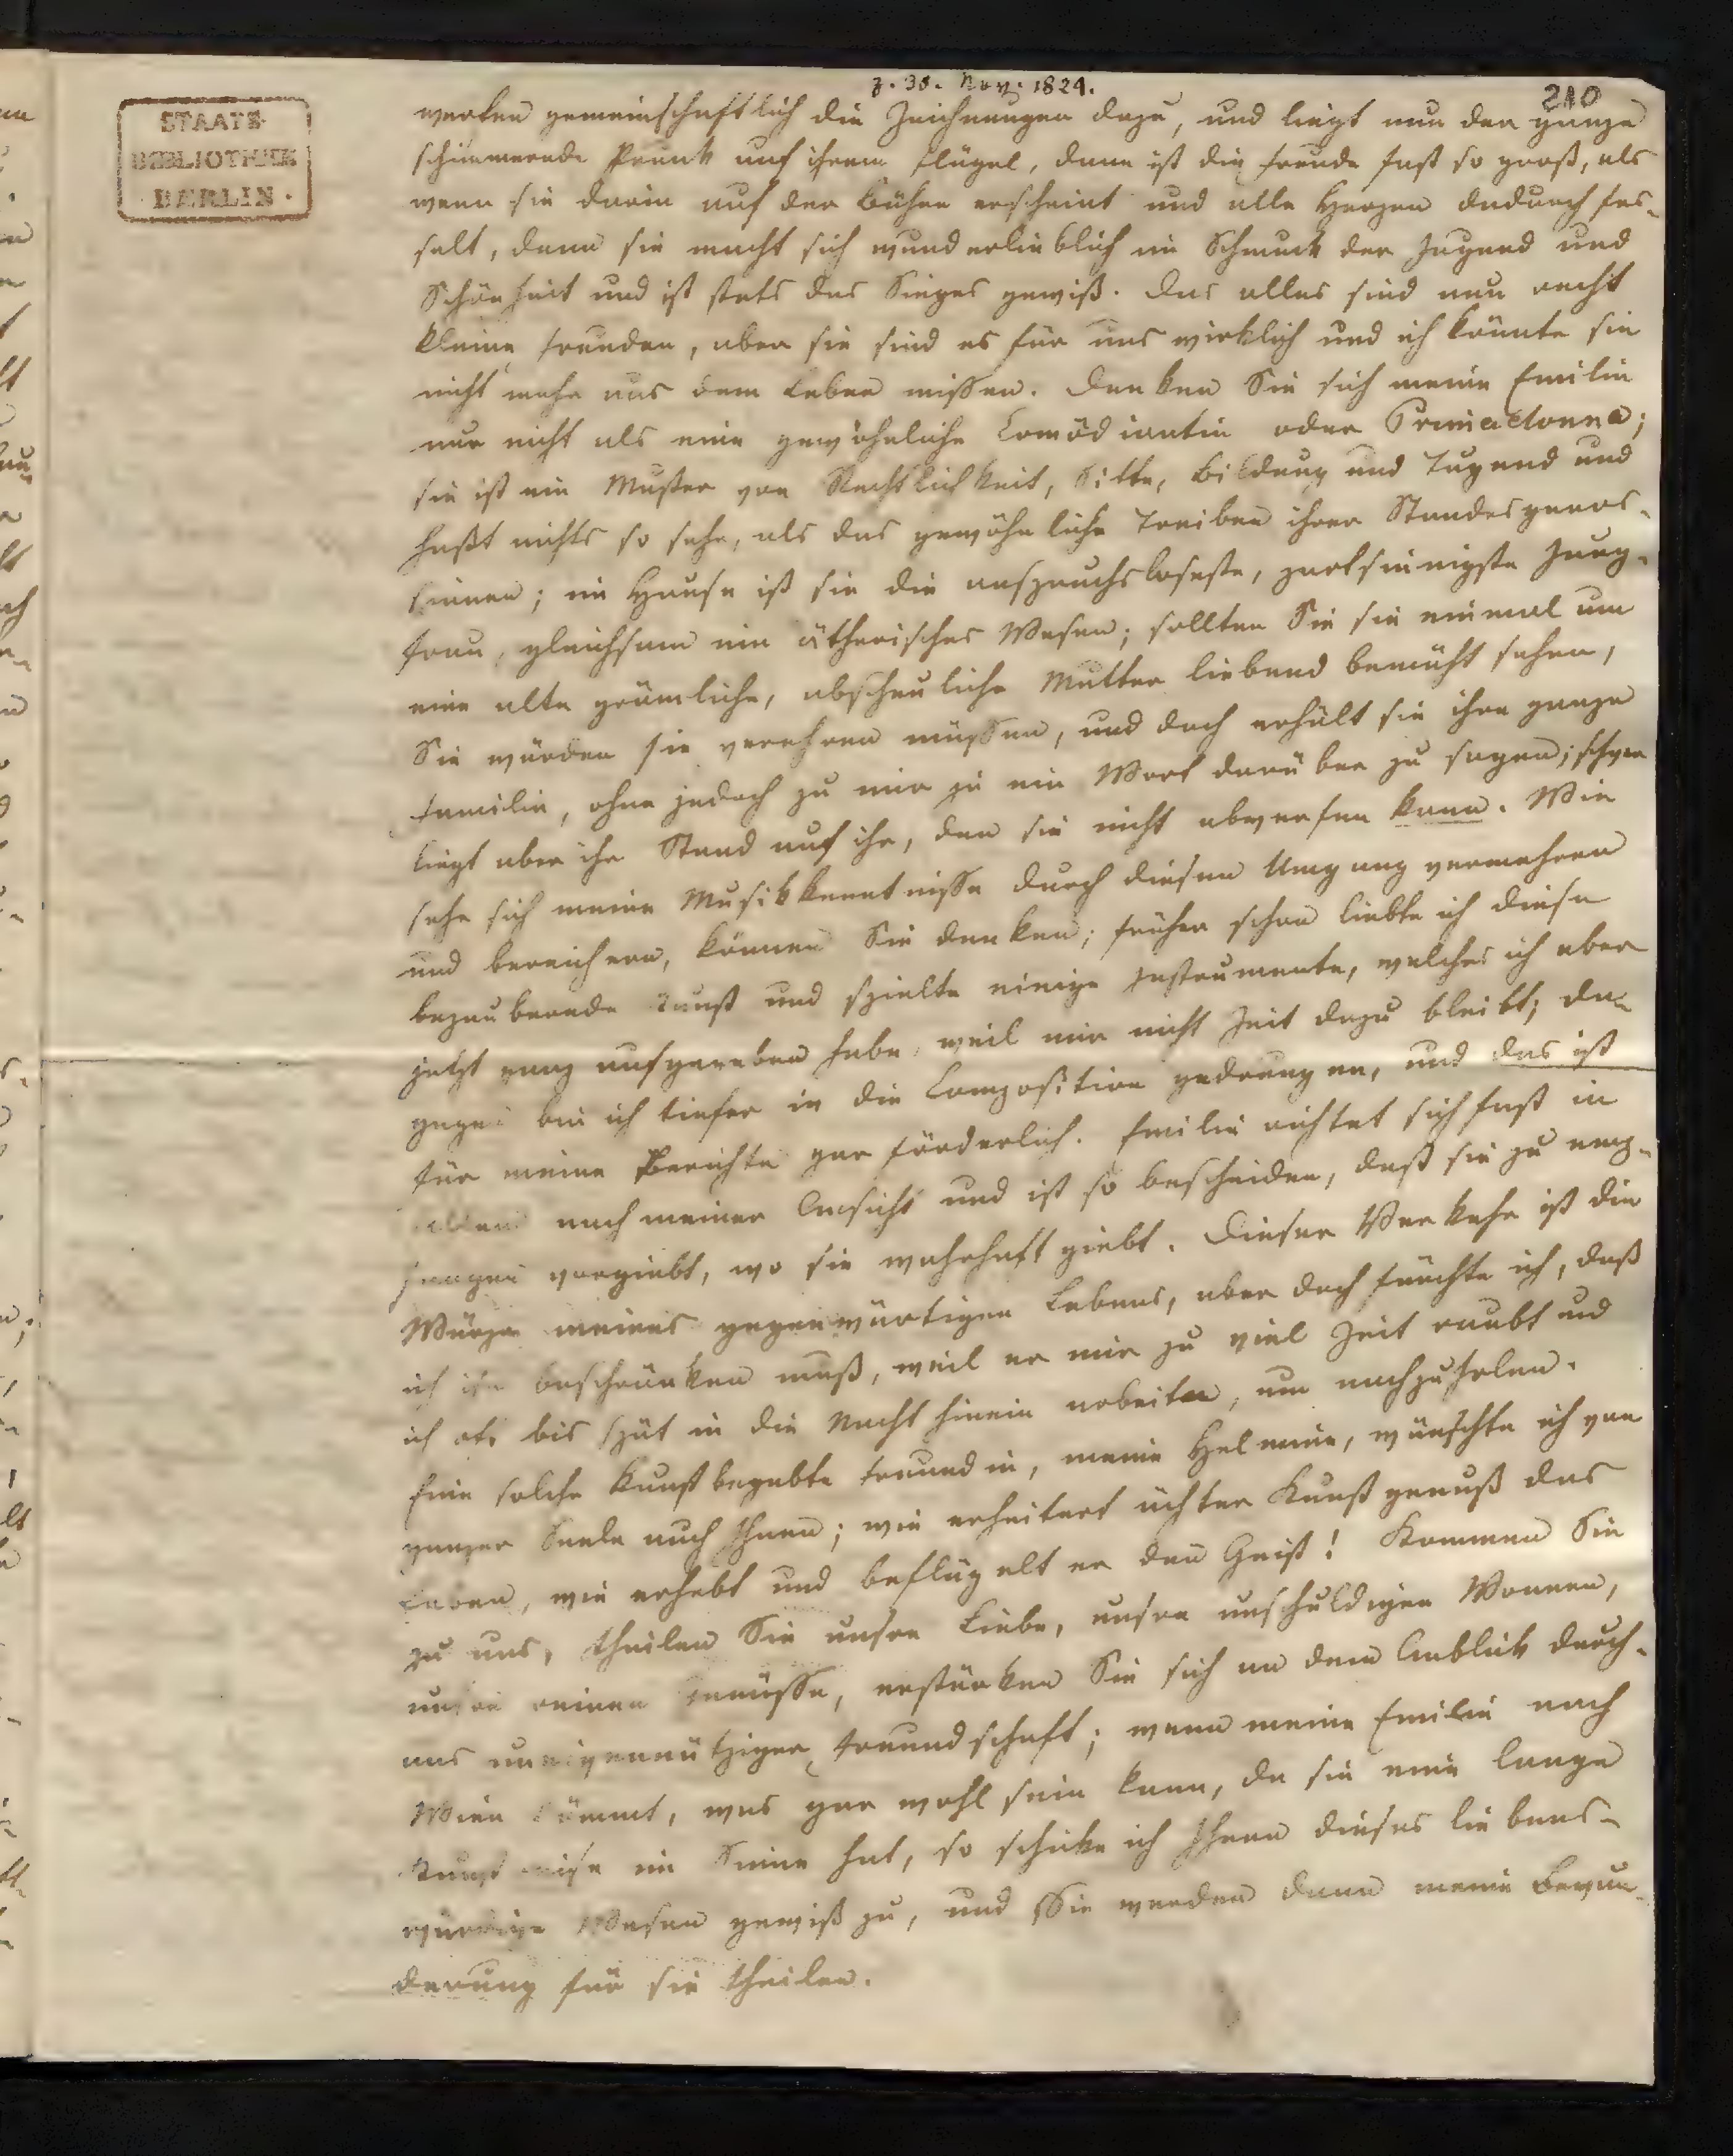 z. 30. Nov. 1824.
210
STAATS-
BIBLIOTHEK
BERLIN.
werfen gemeinschaftlich die Zeichnungen dazu, und liegt nun der ganze
schimmernde Prunk auf ihrem Flügel, dann ist die Freude fast so groß, als
wenn sie darin auf der Bühne erscheint und alle Herzen dadurch fes-
selt, denn sie macht sich wunderlieblich im Schmuck der Jugend und
Schönheit und ist stets des Sieges gewiß. Das alles sind nun recht
kleine Freuden, aber sie sind es für uns wirklich und ich könnte sie
nicht mehr aus dem Leben missen. Denken Sie sich meine Emilie
nur nicht als eine gewöhnliche Comödiantin oder Primadonna;
sie ist ein Muster von Rechtlichkeit, Sitte, Bildung und Tugend und
haßt nichts so sehr, als das gewöhnliche Treiben ihrer Standesgenos-
sinnen; im Hause ist sie die anspruchsloseste, zartsinnigste Jung-
frau, gleichsam ein ätherisches Wesen; sollten Sie sie einmal um
eine alte grämliche, abscheuliche Mutter liebend bemüht sehen,
Sie würden sie verehren müssen, und doch erhält sie ihre ganze
Familie, ohne jedoch zu mir je ein Wort darüber zu sagen; schwer
liegt aber ihr Stand auf ihr, den sie nicht abwerfen kann. Wie
sehr sich meine Musikkenntnisse durch diesen Umgang vermehren
und bereichern, können Sie denken; früher schon liebte ich diese
bezaubernde Kunst und spielte einige Instrumente, welches ich aber
jetzt ganz aufgegeben habe, weil mir nicht Zeit dazu bleibt; da-
gegen bin ich tiefer in die Composition gedrungen, und das ist
für meine Berichte gar förderlich. Emilie richtet sich fast in
allem nach meiner Ansicht und ist so bescheiden, daß sie zu emp-
fangen vorgiebt, wo sie wahrhaft giebt. Dieser Verkehr ist die
Würze meines gegenwärtigen Lebens, aber doch fürchte ich, daß
ich ihn beschränken muß, weil er mir zu viel Zeit raubt und
ich oft bis spät in die Nacht hinein arbeiten, um nachzuholen.
Eine solche kunstbegabte Freundin, meine Helmina, wünschte ich von
ganzer Seele auch Ihnen; wie erheitert ächter Kunstgenuß das
Leben, wie erhebt und beflügelt er den Geist! Kommen Sie
zu uns, theilen Sie unsre Liebe, unsre unschuldigen Wonnen,
unsre reinen Genüsse, erstärken Sie sich an dem Anblick durch-
aus uneigennütziger Freundschaft; wenn meine Emilie nach
Wien kömmt, was gar wohl sein kann, da sie eine lange
Kunstreise im Sinne hat, so schicke ich Ihnen dieses liebens-
würdige Wesen gewiß zu, und Sie werden dann meine Bewun-
derung für sie theilen.